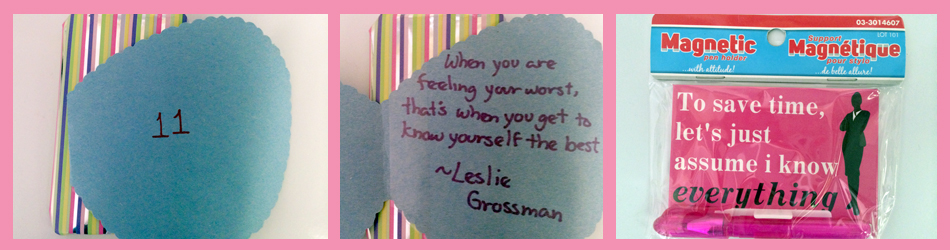 11
When you are
feeling your worst,
that's when you get to
know yourself the best
~Leslie
Grossman
03-3014607
LOT 101
Magnetic
pen holder
...with attitude!
Support
Magnétique
pour stylo
...de belle allure!
To save time,
let's just
assume i know
everything